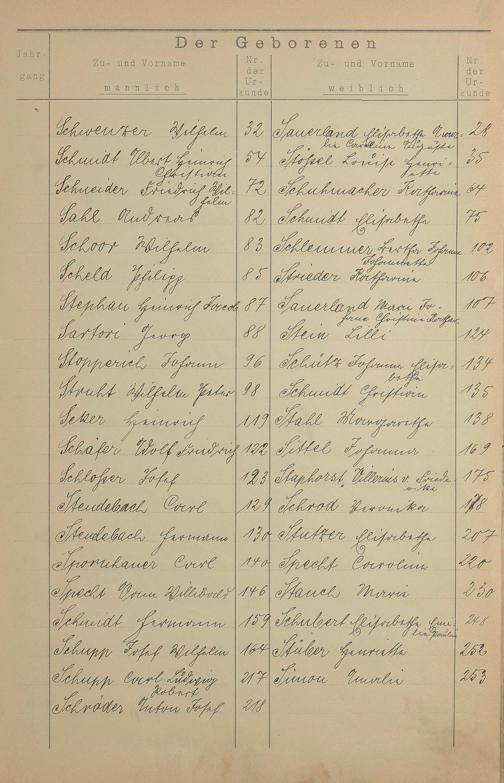 Der Geborenen
Jahr-
gang
Zu- und Vorname
männlich
Nr.
der
Ur-
kunde
Zu- und Vorname
weiblich
Nr.
der
Ur-
kunde
Schwenzer Wilhelm 32 Sauerland Elisabetha 28
lie Caroline Auguste
Schmidt Albert Heinrich 54 Stössel Louise Henri- 35
Christian ette
Schneider Friedrich Wil- 72 Schuhmacher Katharina 64
helm
Sahl Andreas 82 Schmidt Elisabetha 75
Schoor Wilhelm 83 Schlemmer Bertha Johanna 102
Scheld Philipp 85 Strieder Katharina 106
Stephan Heinrich Jacob 87 Sauerland Maria Jo- 107
Sartori Georg 88 Stein Lilli 124
Stopperich Johann 96 Schütz Johanna Elisa- 134
betha
Struht Wilhelm Peter 98 Schmidt Christina 135
Seker Heinrich 119 Stahl Margaretha 138
Schäfer Adolf Friedrich 122 Sittel Johanna 169
Schlosser Josef 123 Staphorst, v. Friede- 175
rike
Stendebach Carl 129 Schrod Veronika 178
Stendebach Hermann 130 Stutzer Elisabetha 207
Spornhauer Carl 140 Specht Carolina 220
Specht Willibald 146 Stauch Maria 230
Schmidt Hermann 159 Schubert Elisabetha Emi- 248
lie Paulin
Schupp Josef Wilhelm 164 Stüber Henriette 252
Schupp Carl Ludwig 217 Simon Amalie 253
Robert
Schröder Anton Josef 218